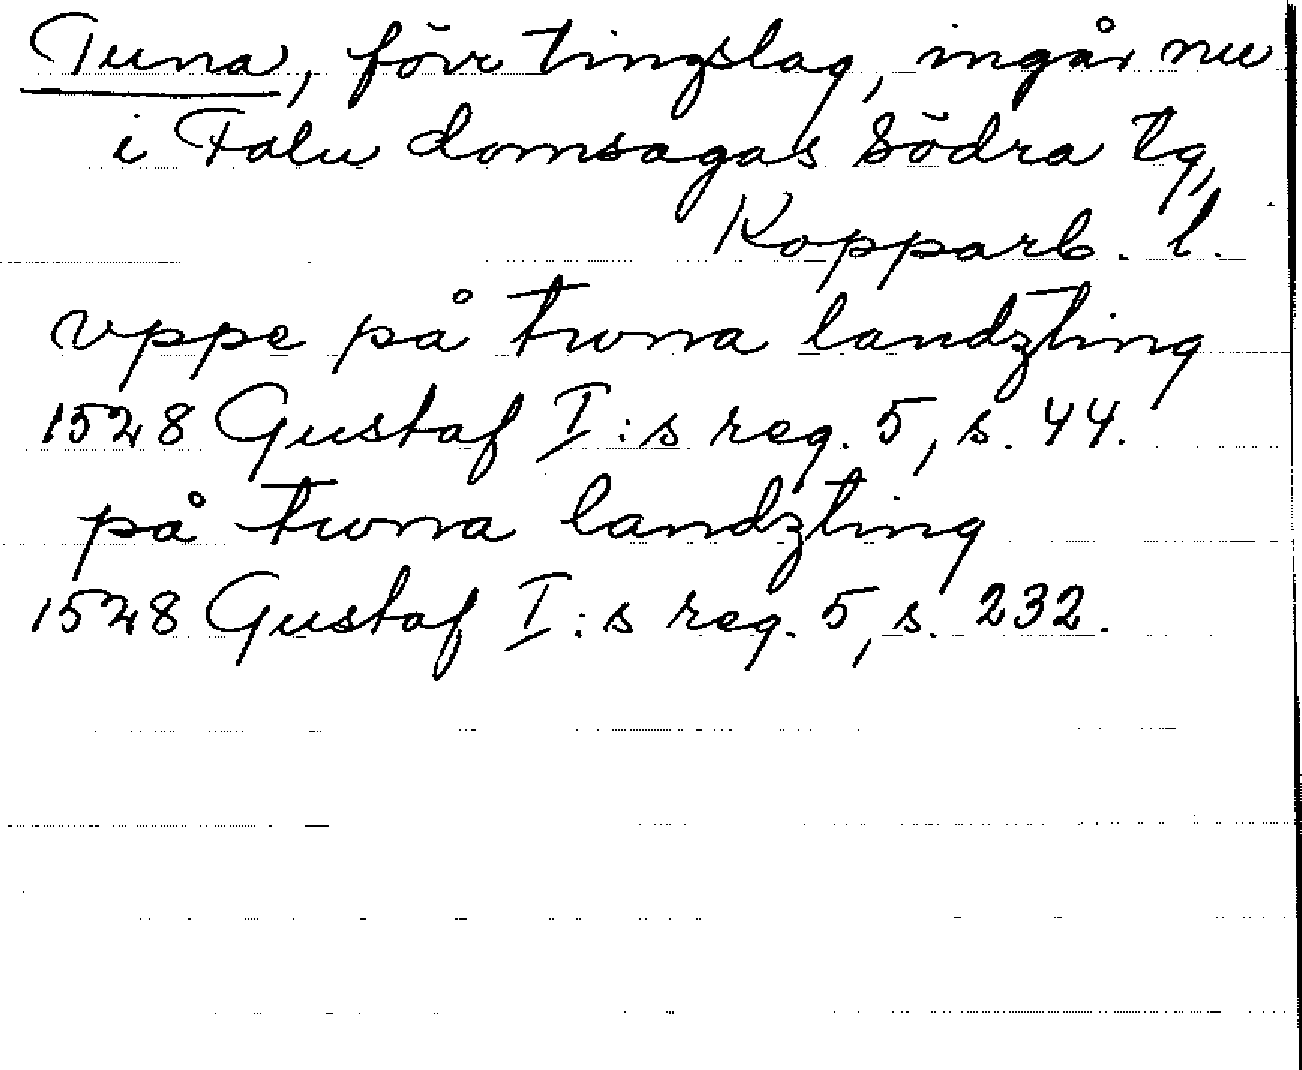 Tuna, förr tingslag, ingår nu
i Falu domsagas Södra tg,
Kopparb. l.
vppe på twna landzting
1528 Gustaf I:s reg. 5, s. 44.
på twna landzting
1528 Gustaf I:s reg. 5, s. 232.